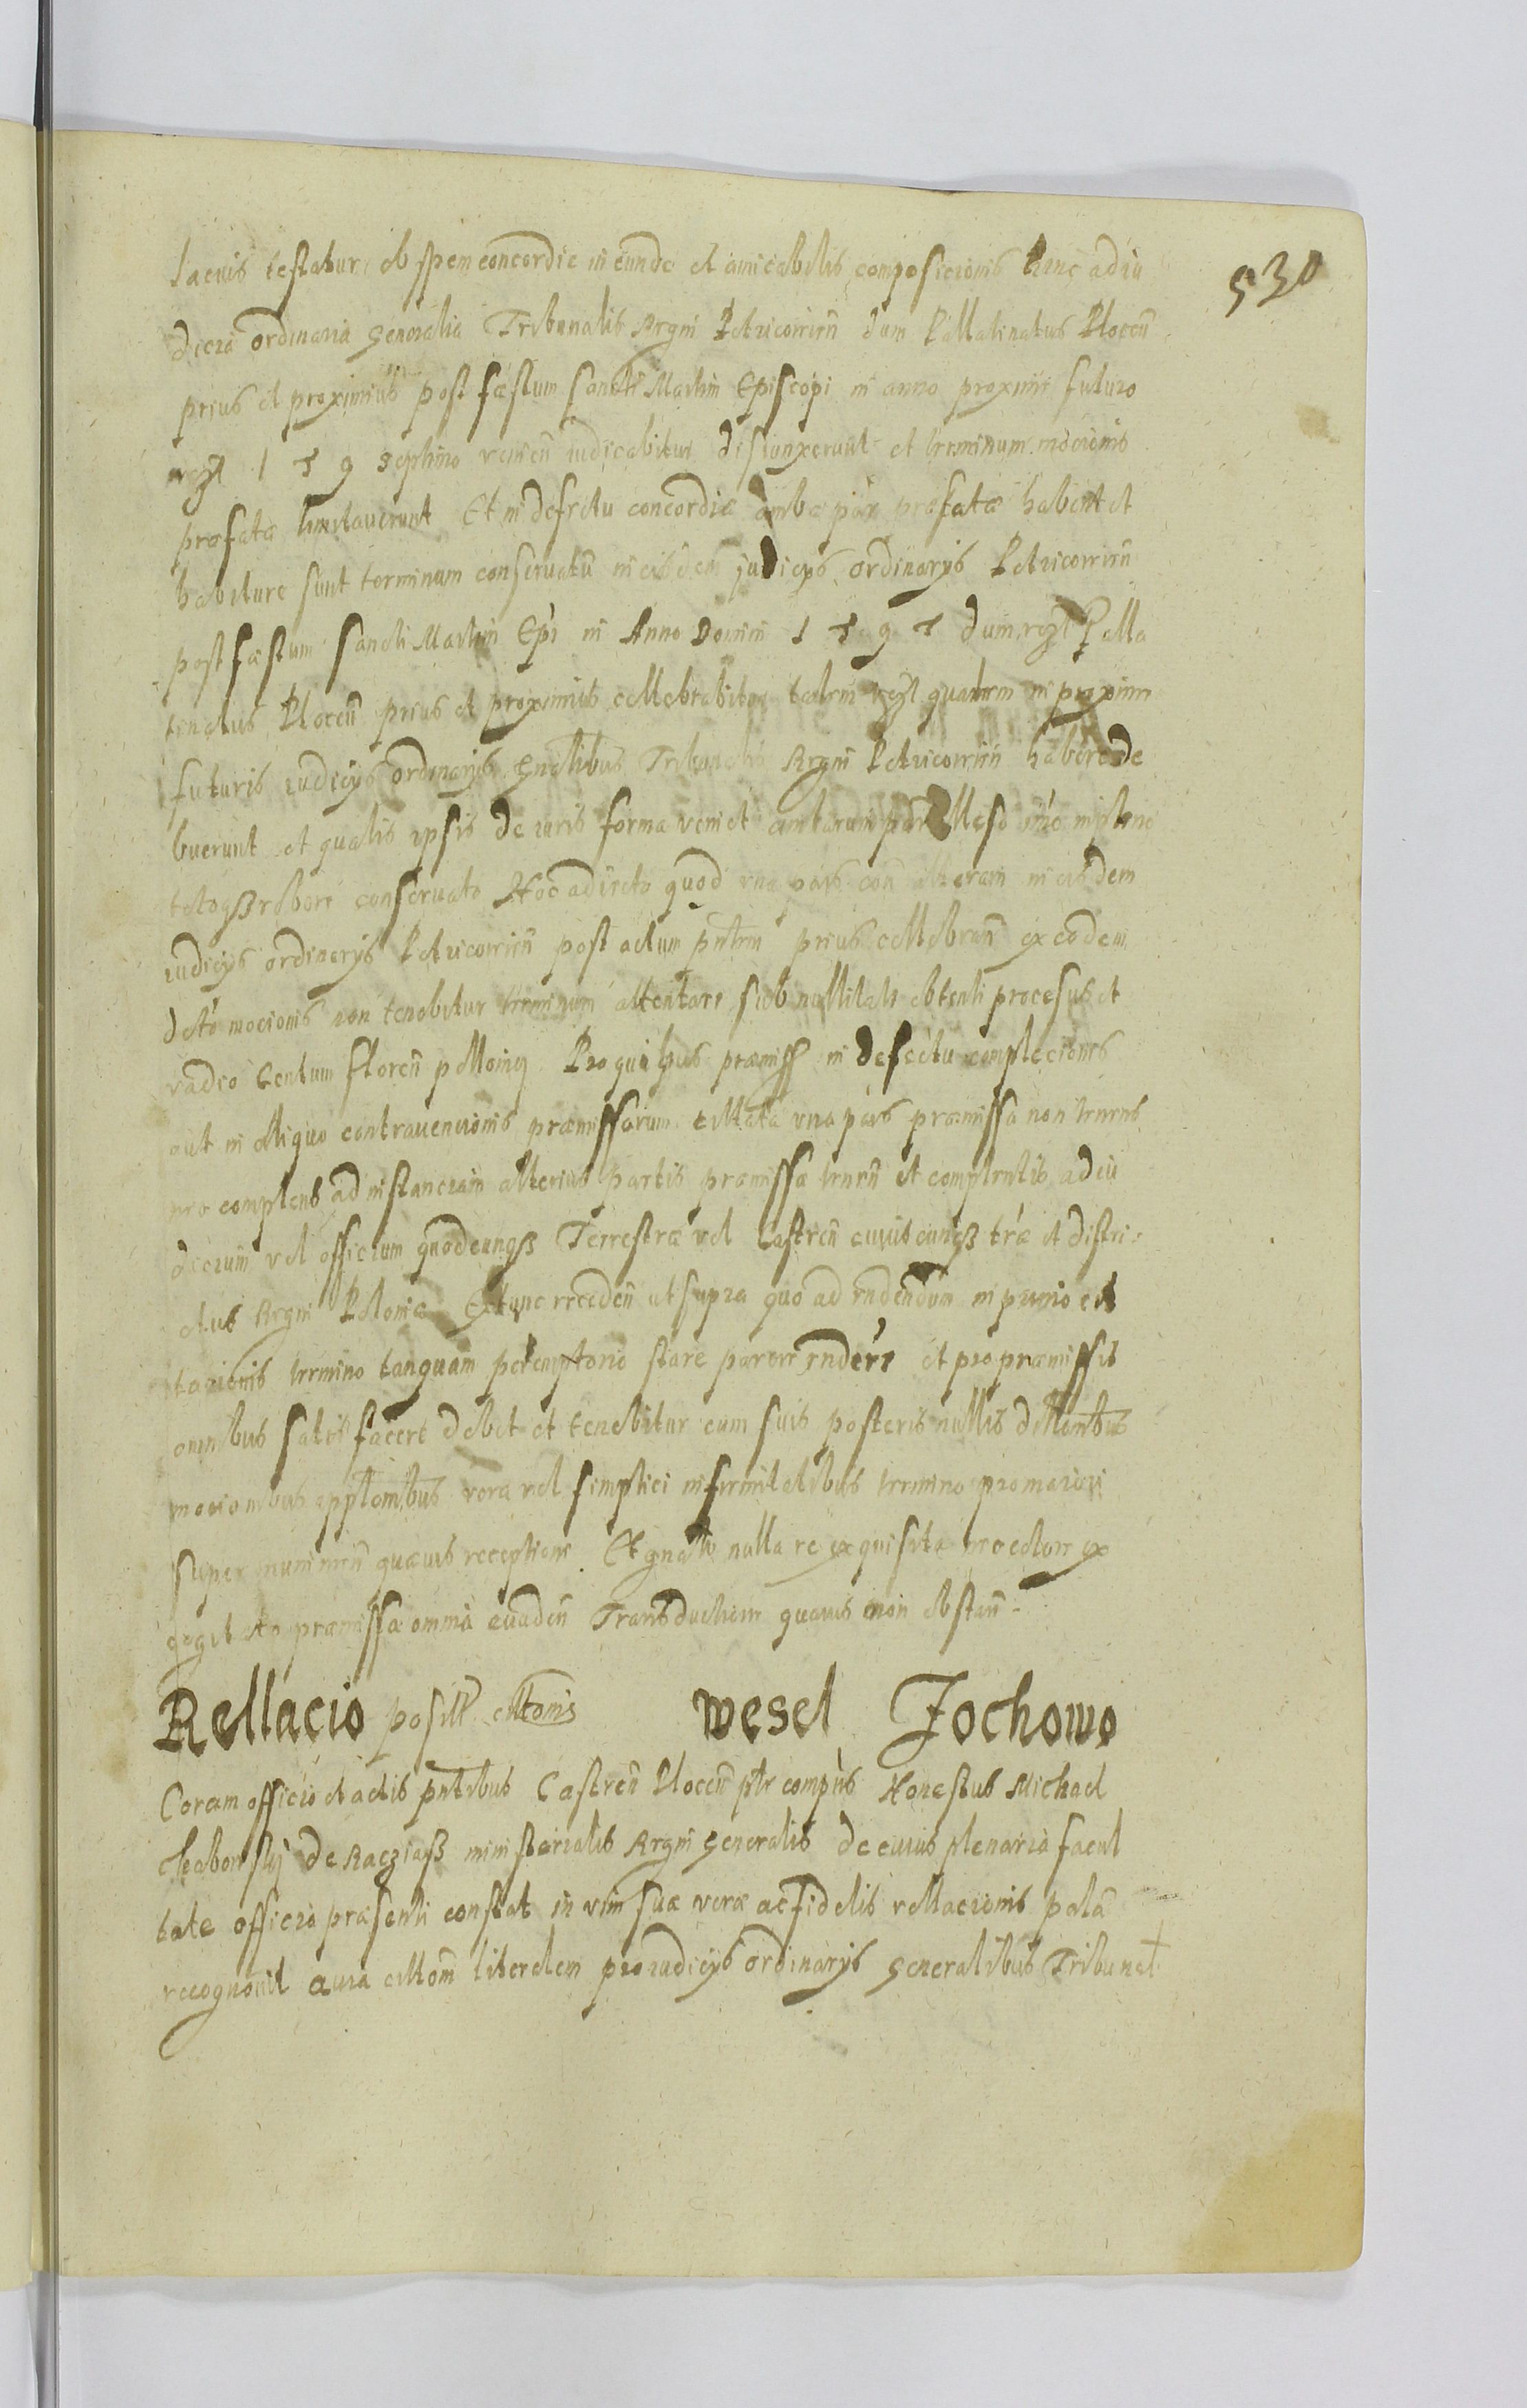 530
lacius testatur, ob spem concordie in eunde et amicabilis composicionis hinc ad iu
dicia ordinaria Generalia Tribunalis Regni Petricouien dum Pallatinatus Plocen
prius et proximius post fæstum Sancti Martini Episcopi in anno proxime futuro
1 5 9 septimo venien iudicabitur distunxerunt et terminum mocionis
præfatæ limitauerunt Et in defectu concordiæ ambæ par præfatæ habent et
habiture sunt terminum conseruatu in eisdem judicys ordinarys Petricouien
post fæstum Sancti Martini Epi in Anno Domini 1 5 9 7 dum Palla
tinatus Plocen prius et proximius cellebrabitur talem qualem in proxime
futuris iudicys ordinarys Gnalibus Tribunalis Regni Petricouien habere de
buerunt et qualis ipsis de iuris forma veniet
totoqß robore conseruato Hoc adiecto quod vna pars con alteram in eisdem
iudicys ordinarys Petricouien post actum pntem prius cellebran ex eodem
mocionis non tenebitur terminum attentare sub nullitate obtenti procesus et
vadio Centum floren pollonig Pro quibus præmiss in defectu complecionis
aut in aliquo contrauencionis præmissorum cittata vna pars præmissa non tenens
nec complens ad instanciam alterius partis præmissa tenen et complentis ad iu
dicium vel officium quodcunqß Terrestræ vel Castren cuiuscunqß træ et distri
ctus Regni Poloniæ Extunc receden ut supra quo ad rndendum in primo cit
tacionis termino tanquam peremptorio stare parere rndere et pro præmissis
omnibus satis facere debet et tenebitur cum suis posteris nullis dillonibus
mocionibus appllonibus vera vel simplici infirmitatibus termino pro maiori
super munimen quauis receptione Et gnalr nulla re exquisita nec colore ex
cogitato præmissa omnia euaden Transductione quauis non obstan
Rellacio posit cittonis wesel Jochowo
Coram officio et actis pntibus Castren Plocen ptr comprns Honestus Michael
de Racziaß ministerialis Regni Generalis de cuius plenaria facul
tate officio præsenti constat in vim suæ veræ ac fidelis rellacionis pala
recognouit quia cittom literalem pro iudicys ordinarys Generalibus Tribunal